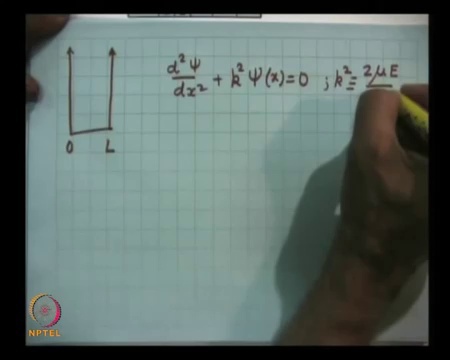 d²Ψ/dx² + k² Ψ(x) = 0 ; k² ≡ 2μE
0 L
NPTEL